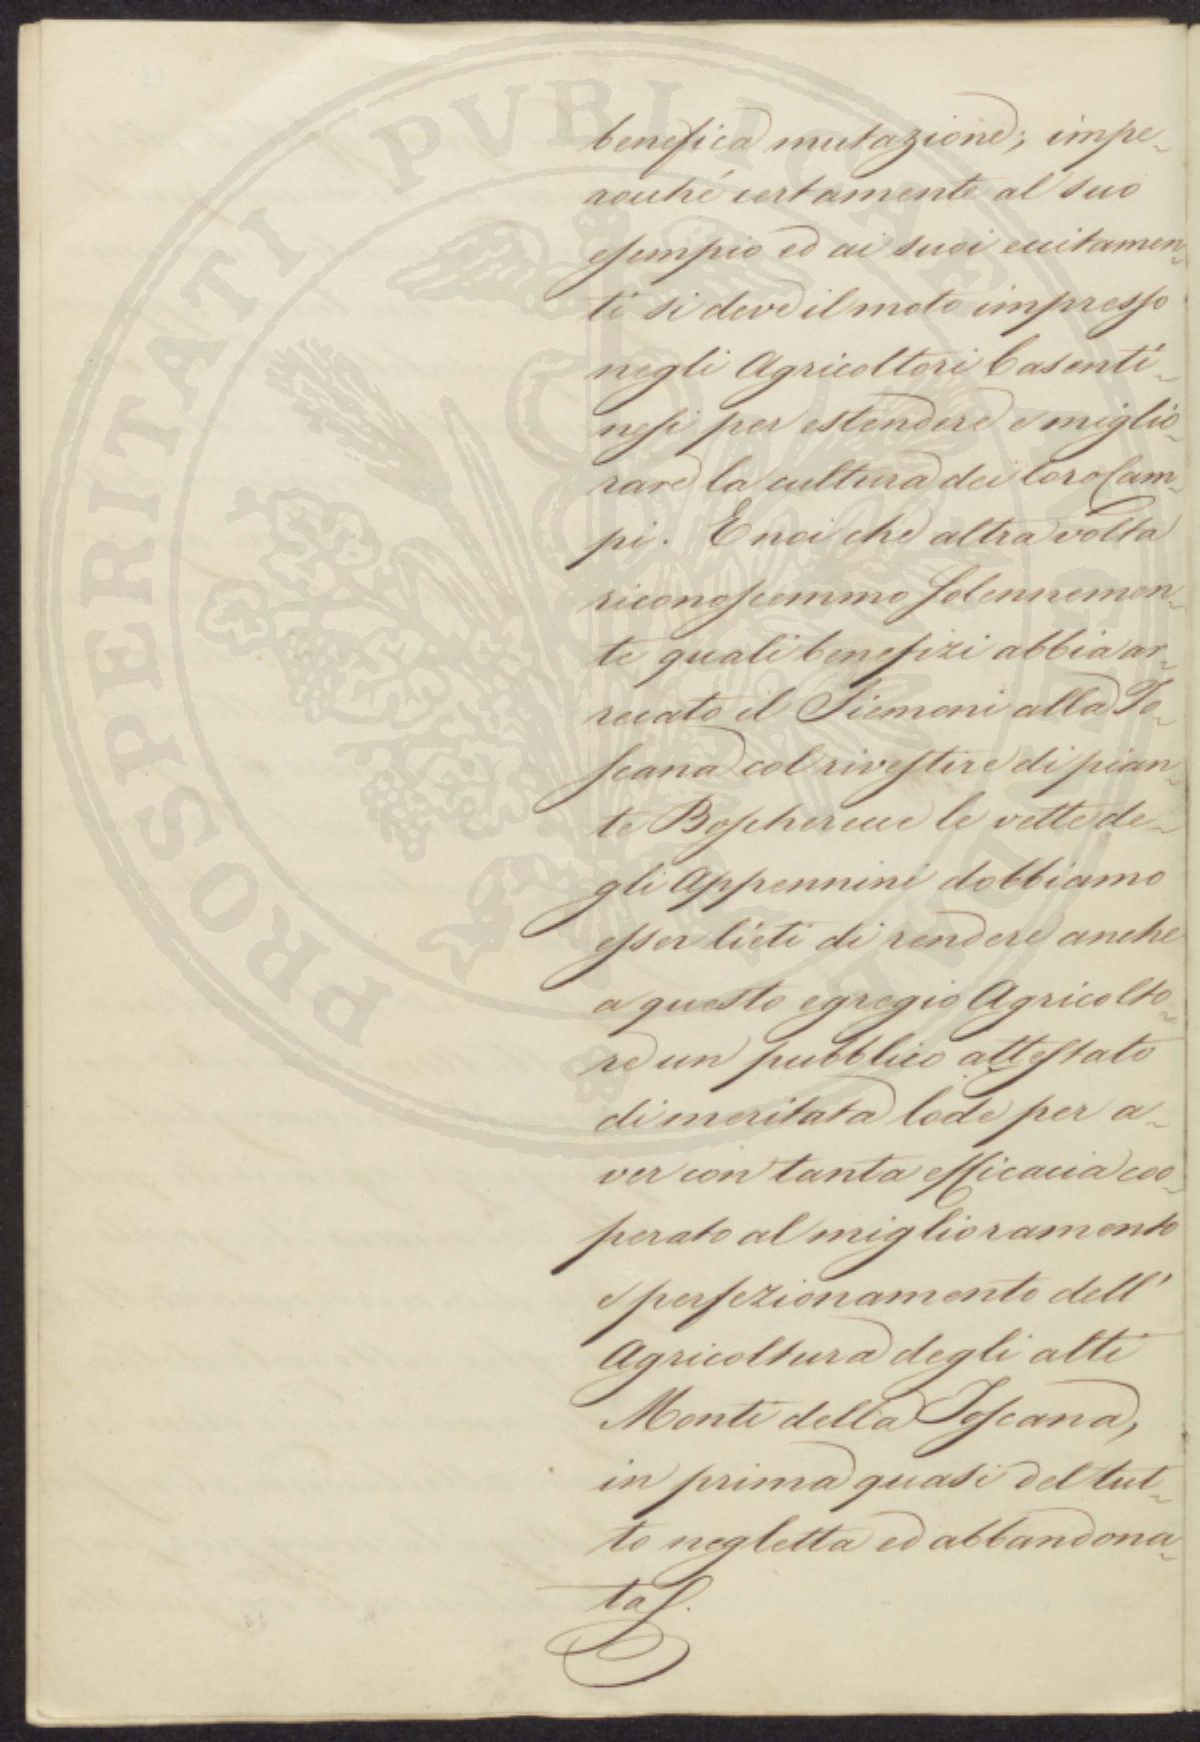 benefica mutazione; impe-
rocchè certamente al suo
esempio ed ai suoi eccitamen-
ti si deve il moto impresso
negli Agricoltori Casenti-
nesi per estendere e miglio-
rare la cultura dei loro Cam-
pi. E noi che altra volta
riconoscemmo solennemen-
te quali benefizi abbia ar-
recato il Siemoni alla To-
scana col rivestire di pian-
te Boscherecce le vette de-
gli Appennini dobbiamo
esser lieti di rendere anche
a questo egregio Agricolto-
re un pubblico attestato
di meritata lode per a-
ver con tanta efficacia coo-
perato al miglioramento
e perfezionamento dell'
Agricoltura degli alti
Monti della Toscana,
in prima quasi del tut-
to negletta ed abbandona-
ta.
PROSPERITATI PVBLICAE AVGENDAE